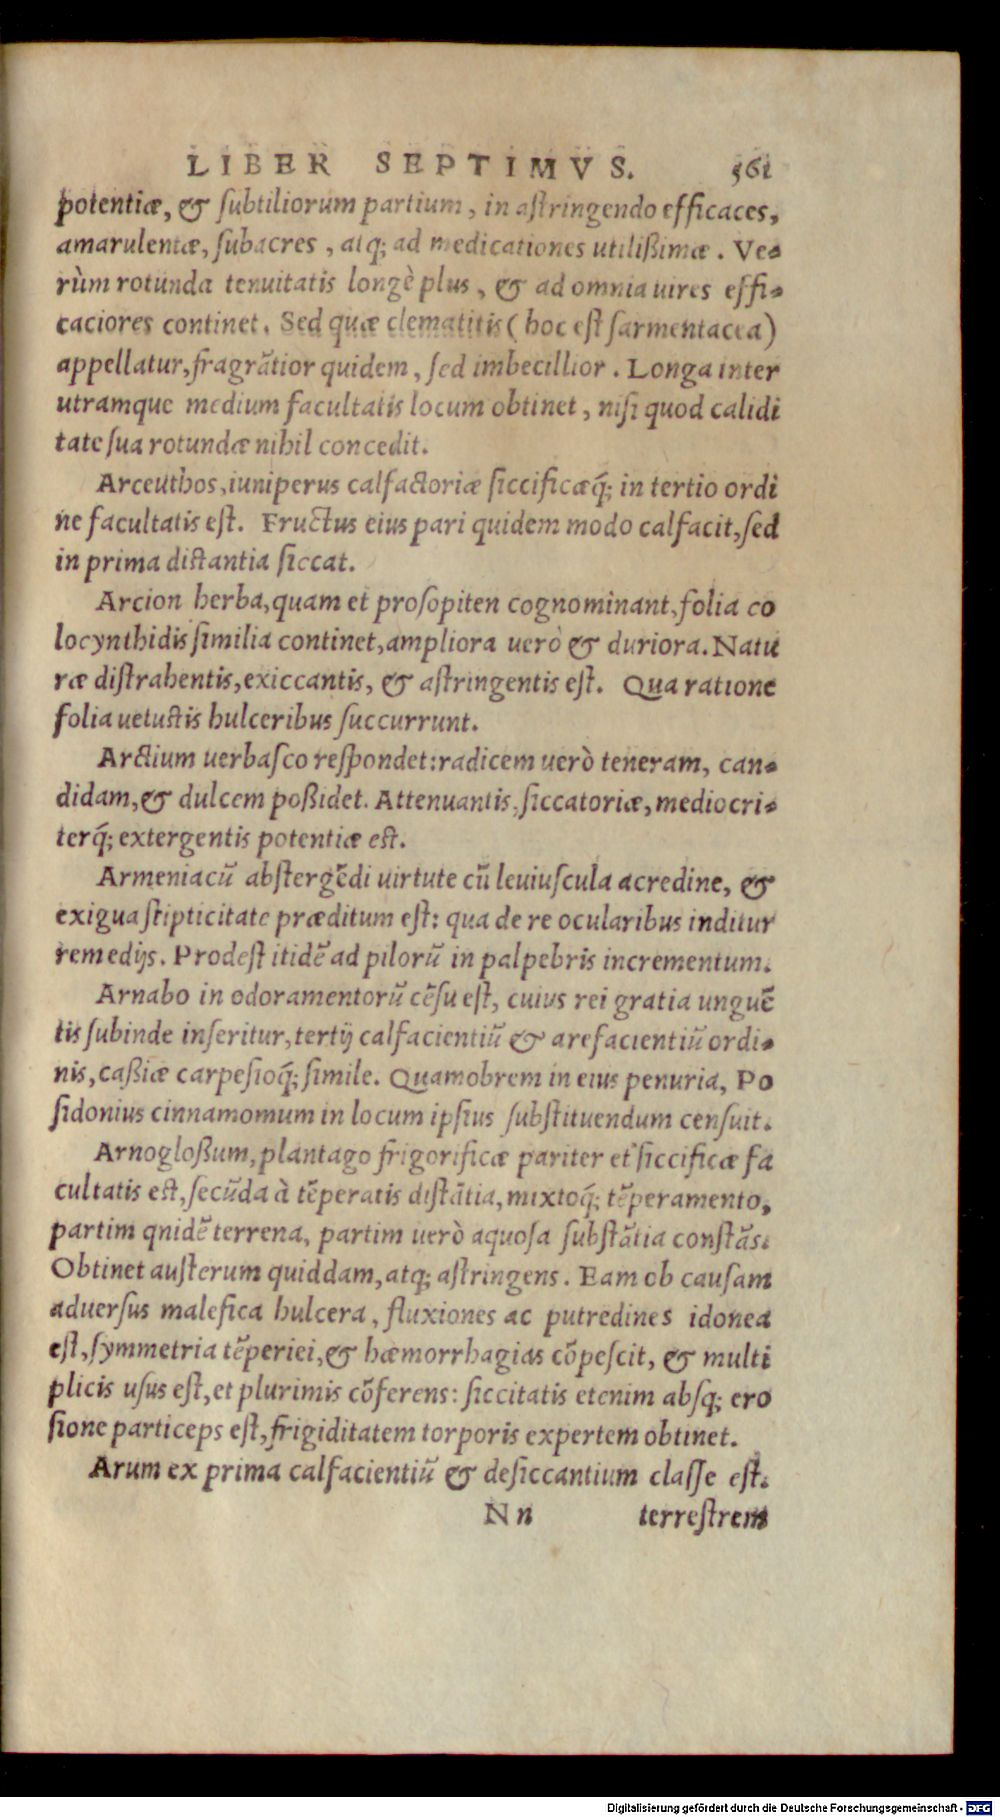 LIBER SEPTIMVS. 561
potentiæ, & ſubtiliorum partium, in aſtringendo efficaces,
amarulentæ, ſubacres, atq; ad medicationes utilißimæ. Ve-
rùm rotunda tenuitatis longè plus, & ad omnia uires effi-
caciores continet. Sed quæ clematitis (hoc eſt ſarmentacea)
appellatur, fragrãtior quidem, ſed imbecillior. Longa inter
utramque medium facultatis locum obtinet, niſi quod calidi
tate ſua rotundæ nihil concedit.
Arceuthos, iuniperus calfactoriæ ſiccificæq́; in tertio ordi
ne facultatis eſt. Fructus eius pari quidem modo calfacit, ſed
in prima diſtantia ſiccat.
Arcion herba, quam et proſopiten cognominant, folia co
locynthidis ſimilia continet, ampliora uerò & duriora. Natu
ræ diſtrahentis, exiccantis, & aſtringentis eſt. Qua ratione
folia uetuſtis hulceribus ſuccurrunt.
Arctium uerbaſco reſpondet: radicem uerò teneram, can-
didam, & dulcem poßidet. Attenuantis, ſiccatoriæ, mediocri-
terq́; extergentis potentiæ eſt.
Armeniacũ abſtergẽdi uirtute cũ leuiuſcula acredine, &
exigua ſtipticitate præditum eſt: qua de re ocularibus inditur
remedijs. Prodeſt itidẽ ad pilorũ in palpebris incrementum.
Arnabo in odoramentorũ cẽſu eſt, cuius rei gratia unguẽ
tis ſubinde inſeritur, tertij calfacientiũ & arefacientiũ ordi-
nis, caßiæ carpeſioq́; ſimile. Quamobrem in eius penuria, Po
ſidonius cinnamomum in locum ipſius ſubſtituendum cenſuit.
Arnogloßum, plantago frigorificæ pariter et ſiccificæ fa
cultatis eſt, ſecũda à tẽperatis diſtãtia, mixtoq́; tẽperamento,
partim qnidẽ terrena, partim uerò aquoſa ſubſtãtia conſtãs.
Obtinet auſterum quiddam, atq; aſtringens. Eam ob cauſam
aduerſus malefica hulcera, fluxiones ac putredines idonea
eſt, ſymmetria tẽperiei, & hæmorrhagias cõpeſcit, & multi
plicis uſus eſt, et plurimis cõferens: ſiccitatis etenim abſq; ero
ſione particeps eſt, frigiditatem torporis expertem obtinet.
Arum ex prima calfacientiũ & deſiccantium claſſe eſt.
Nn terreſtrem
Digitalisierung gefördert durch die Deutsche Forschungsgemeinschaft - DFG